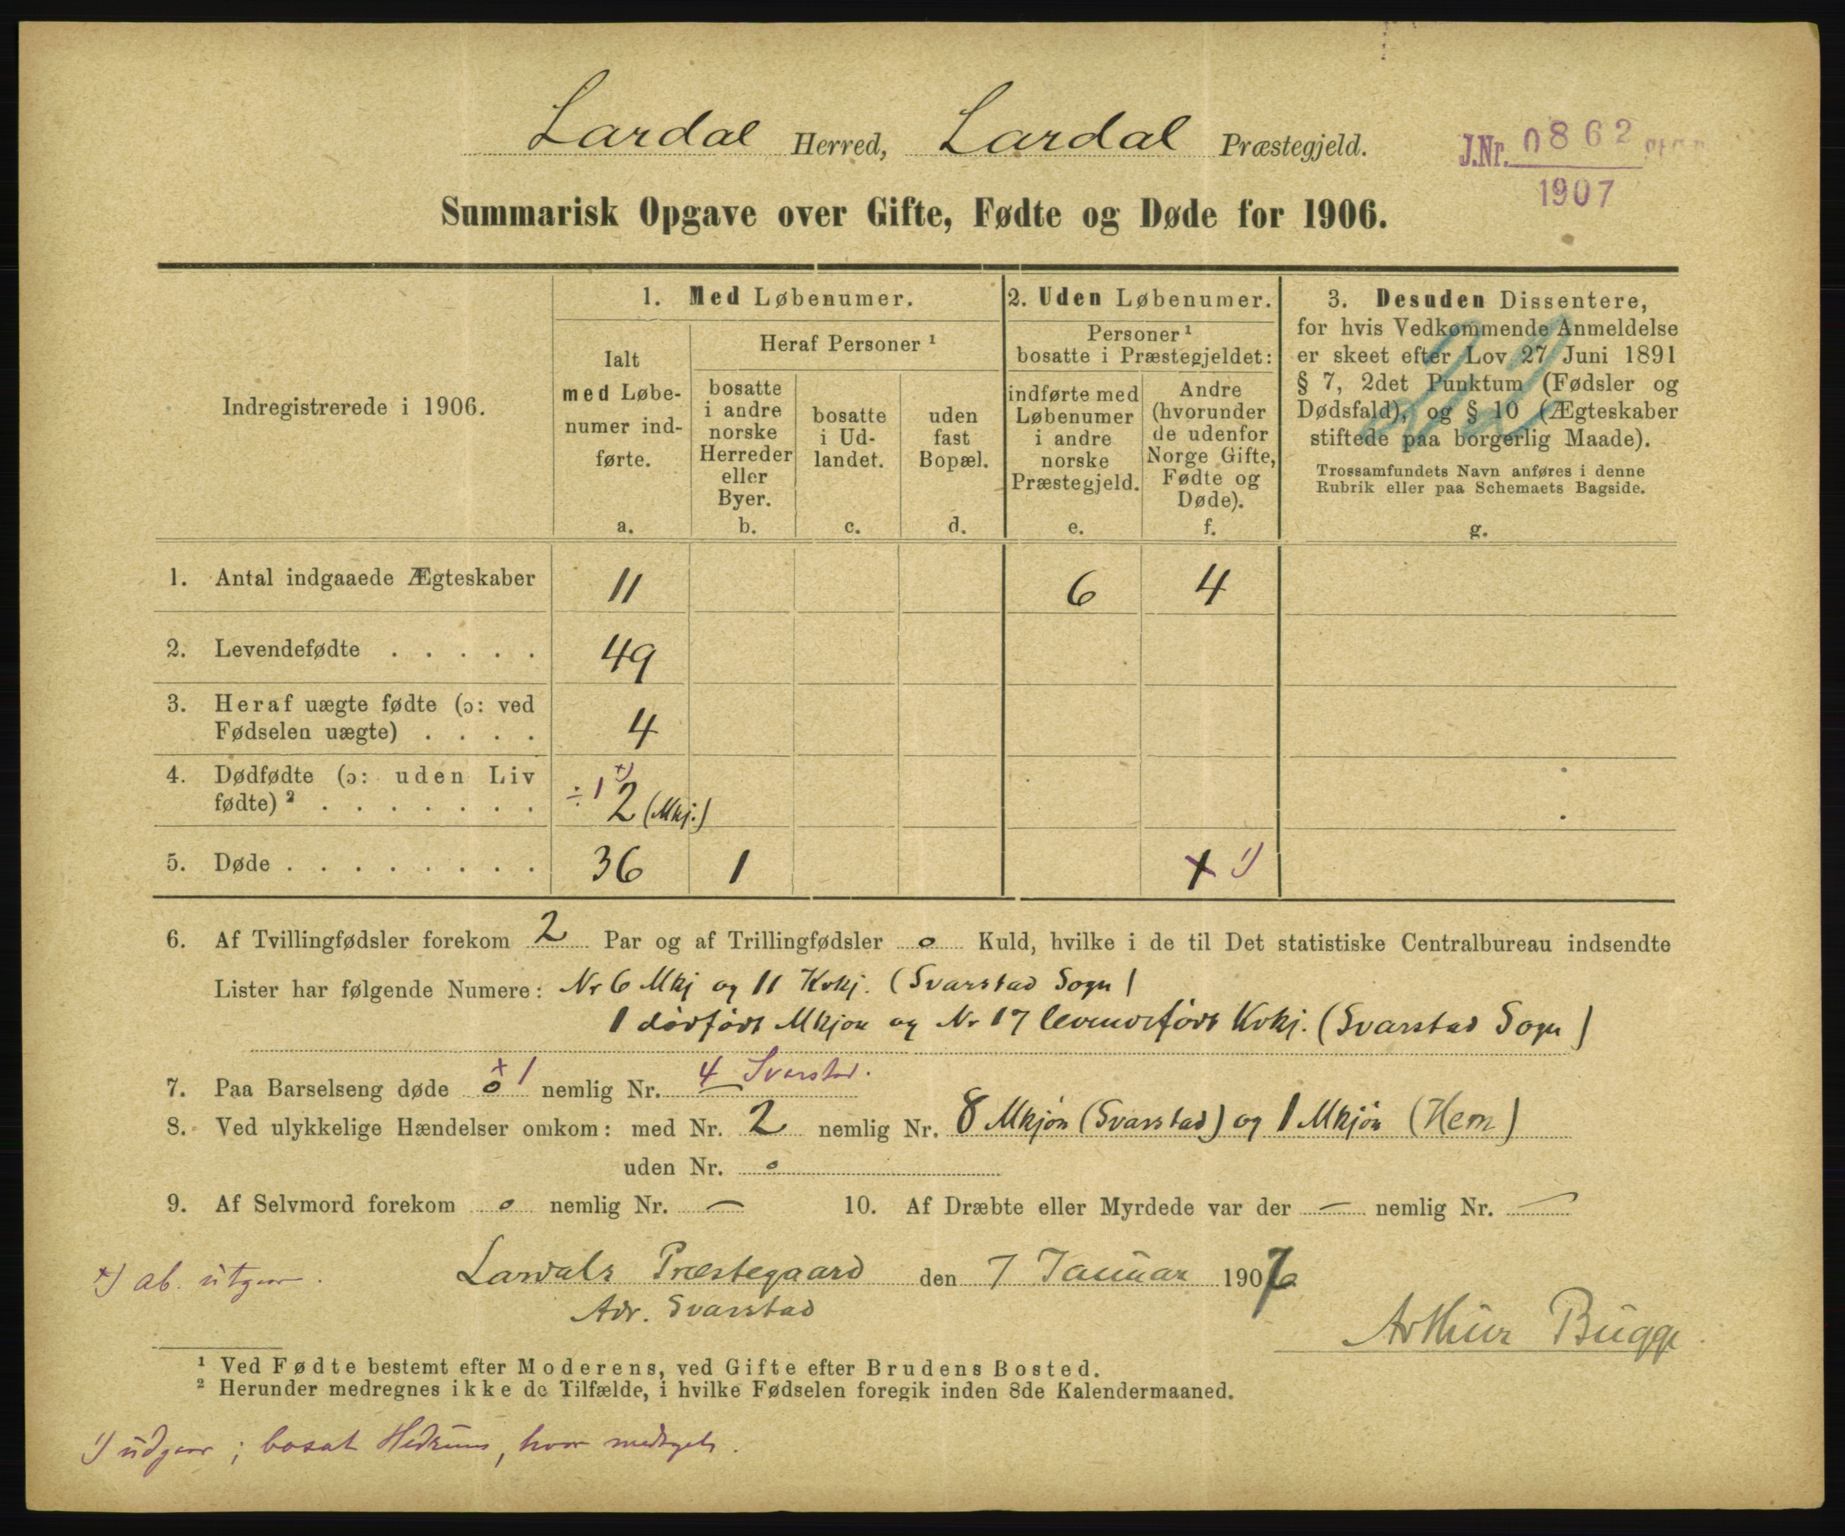 Lardal Herred, Lardal Præstegjeld.
J.Nr. 0862
1907
Summarisk Opgave over Gifte, Fødte og Døde for 1906.
Indregistrerede i 1906.
1. Med Løbenumer.
Ialt med Løbenumer indførte.
a.
Heraf Personer ¹
bosatte i andre norske Herreder eller Byer.
b.
bosatte i Udlandet.
c.
uden fast Bopæl.
d.
2. Uden Løbenumer.
Personer ¹ bosatte i Præstegjeldet:
indførte med Løbenumer i andre norske Præstegjeld.
e.
Andre (hvorunder de udenfor Norge Gifte, Fødte og Døde).
f.
3. Desuden Dissentere,
for hvis Vedkommende Anmeldelse
er skeet efter Lov 27 Juni 1891
§ 7, 2det Punktum (Fødsler og
Dødsfald), og § 10 (Ægteskaber
stiftede paa borgerlig Maade).
Trossamfundets Navn anføres i denne
Rubrik eller paa Schemaets Bagside.
g.
22
1. Antal indgaaede Ægteskaber 11 6 4
2. Levendefødte . . . . . 49
3. Heraf uægte fødte (ɔ: ved
Fødselen uægte) . . . . 4
4. Dødfødte (ɔ: uden Liv
fødte) ² . . . . . . . ÷1 ×) 2 (Mkj.)
5. Døde . . . . . . . . 36 1 1 ¹)
6. Af Tvillingfødsler forekom 2 Par og af Trillingfødsler o Kuld, hvilke i de til Det statistiske Centralbureau indsendte
Lister har følgende Numere: Nr 6 Mkj og 11 Kvkj. (Svarstad Sogn)
1 dødfødt Mkjøn og Nr 17 levendefødt Kvkj. (Svarstad Sogn)
7. Paa Barselseng døde o ×1 nemlig Nr. 4 Svarstad.
8. Ved ulykkelige Hændelser omkom: med Nr. 2 nemlig Nr. 8 Mkjøn (Svarstad) og 1 Mkjøn (Hem)
uden Nr. o
9. Af Selvmord forekom o nemlig Nr. — 10. Af Dræbte eller Myrdede var der — nemlig Nr. —
×) ab. utgaar.
Lardals Præstegaard den 7 Januar 1907
Adr. Svarstad
Arthur Bugge.
¹ Ved Fødte bestemt efter Moderens, ved Gifte efter Brudens Bosted.
² Herunder medregnes ikke de Tilfælde, i hvilke Fødselen foregik inden 8de Kalendermaaned.
¹) udgaar; bosat Hedrum, hvor medregnes.